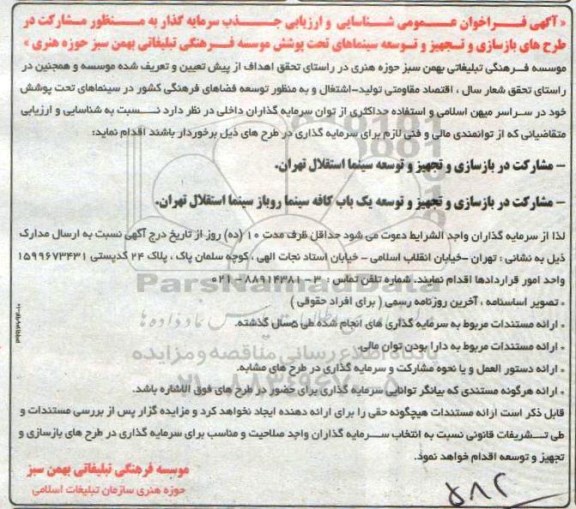 « آگهی فراخوان عمومی شناسایی و ارزیابی جذب سرمایه گذار به منظور مشارکت در
طرح های بازسازی و تجهیز و توسعه سینماهای تحت پوشش موسسه فرهنگی تبلیغاتی بهمن سبز حوزه هنری »
موسسه فرهنگی تبلیغاتی بهمن سبز حوزه هنری در راستای تحقق اهداف از پیش تعیین و تعریف شده موسسه و همچنین در
راستای تحقق شعار سال ، اقتصاد مقاومتی تولید-اشتغال و به منظور توسعه فضاهای فرهنگی کشور در سینماهای تحت پوشش
خود در سراسر میهن اسلامی و استفاده حداکثری از توان سرمایه گذاران داخلی در نظر دارد نسبت به شناسایی و ارزیابی
متقاضیانی که از توانمندی مالی و فنی لازم برای سرمایه گذاری در طرح های ذیل برخوردار باشند اقدام نماید:
– مشارکت در بازسازی و تجهیز و توسعه سینما استقلال تهران.
– مشارکت در بازسازی و تجهیز و توسعه یک باب کافه سینما روباز سینما استقلال تهران.
لذا از سرمایه گذاران واجد الشرایط دعوت می شود حداقل ظرف مدت ۱۰ (ده) روز از تاریخ درج آگهی نسبت به ارسال مدارک
ذیل به نشانی : تهران –خیابان انقلاب اسلامی – خیابان استاد نجات الهی ، کوچه سلمان پاک ، پلاک ۲۴ کدپستی ۱۵۹۹۶۷۳۴۳۱
واحد امور قراردادها اقدام نمایند. شماره تلفن تماس : ۳- ۸۸۹۱۴۳۸۱-۰۲۱
• تصویر اساسنامه ، آخرین روزنامه رسمی ( برای افراد حقوقی )
• ارائه مستندات مربوط به سرمایه گذاری های انجام شده طی ۵سال گذشته.
• ارائه مستندات مربوط به دارا بودن توان مالی.
• ارائه دستور العمل و یا نحوه مشارکت و سرمایه گذاری در طرح های مشابه.
• ارائه هرگونه مستندی که بیانگر توانایی سرمایه گذاری برای حضور در طرح های فوق الاشاره باشد.
قابل ذکر است ارائه مستندات هیچگونه حقی را برای ارائه دهنده ایجاد نخواهد کرد و مزایده گزار پس از بررسی مستندات و
طی تشریفات قانونی نسبت به انتخاب سرمایه گذاران واجد صلاحیت و مناسب برای سرمایه گذاری در طرح های بازسازی و
تجهیز و توسعه اقدام خواهد نمود.
موسسه فرهنگی تبلیغاتی بهمن سبز
حوزه هنری سازمان تبلیغات اسلامی
ParsNamadData
پایگاه اطلاع رسانی مناقصه و مزایده